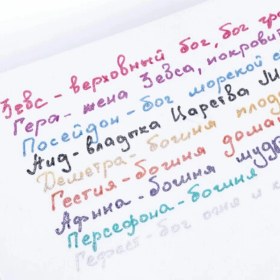 Зевс - верховный бог, бог
Гера - жена Зевса, покрови
Посейдон - бог морской с
Аид - владыка Царства М
Деметра - богиня плод
Гестия - богиня дома
Афина - богиня мудр
Персефона - богиня
Гефест - бог огня и к